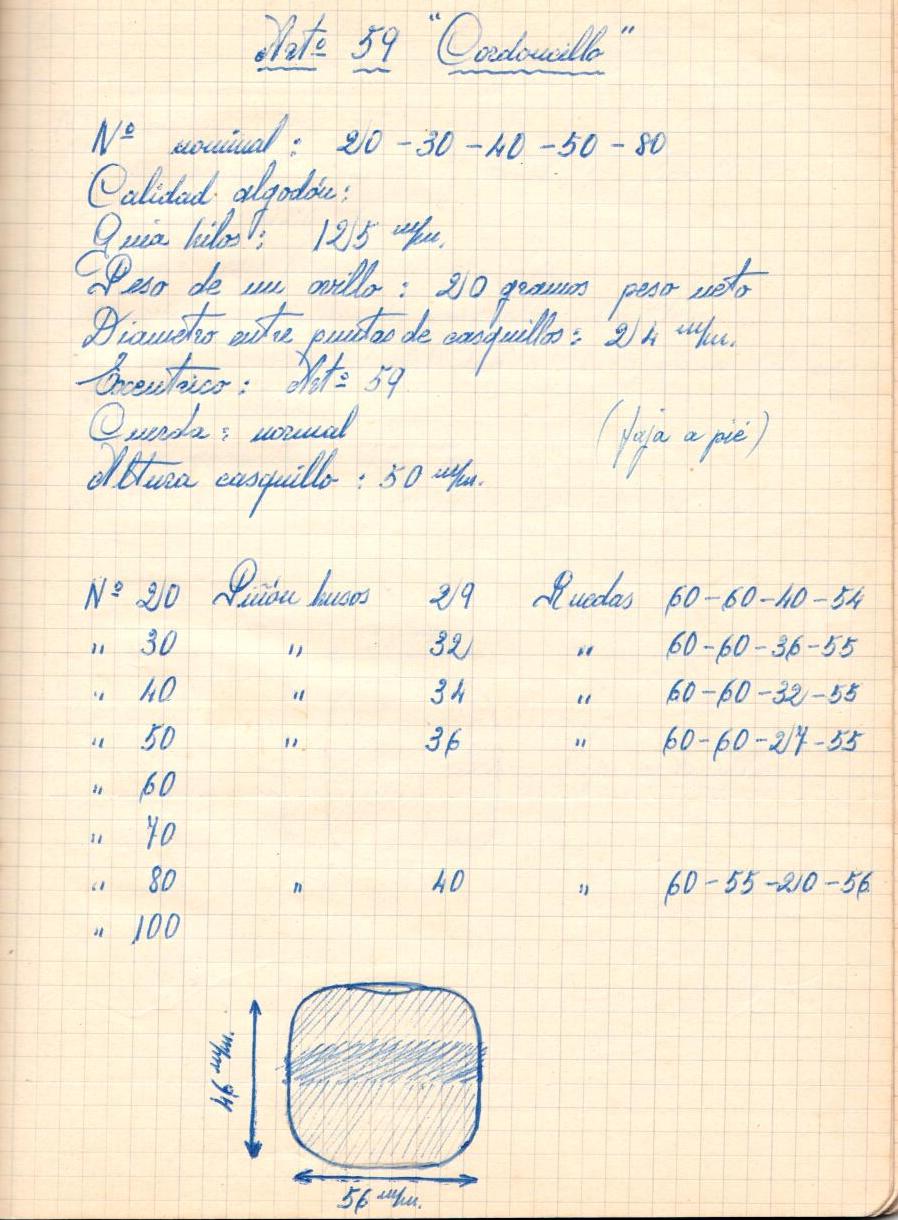 Artº 59 "Cordoncillo"
Nº nominal: 20 - 30 - 40 - 50 - 80
Calidad algodón:
Guia hilos: 125 m/m.
Peso de un ovillo: 20 gramos peso neto
Diametro entre puntas de casquillos: 24 m/m.
Excentrico: Artº 59
Cuerda: normal (faja a pié)
Altura casquillo: 50 m/m.
Nº 20 Piñón husos 29 Ruedas 60-60-40-54
" 30 " 32 " 60-60-36-55
" 40 " 34 " 60-60-32-55
" 50 " 36 " 60-60-27-55
" 60
" 70
" 80 " 40 " 60-55-20-56
" 100
46 m/m.
56 m/m.